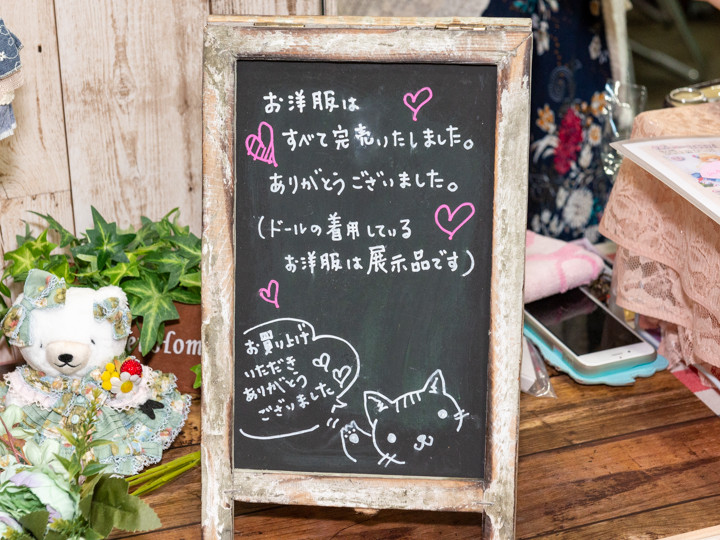 お洋服は
すべて完売いたしました。
ありがとうございました。
(ドールの着用している
お洋服は展示品です)
お買り上げ
いただき
ありがとう
ございました
Hom